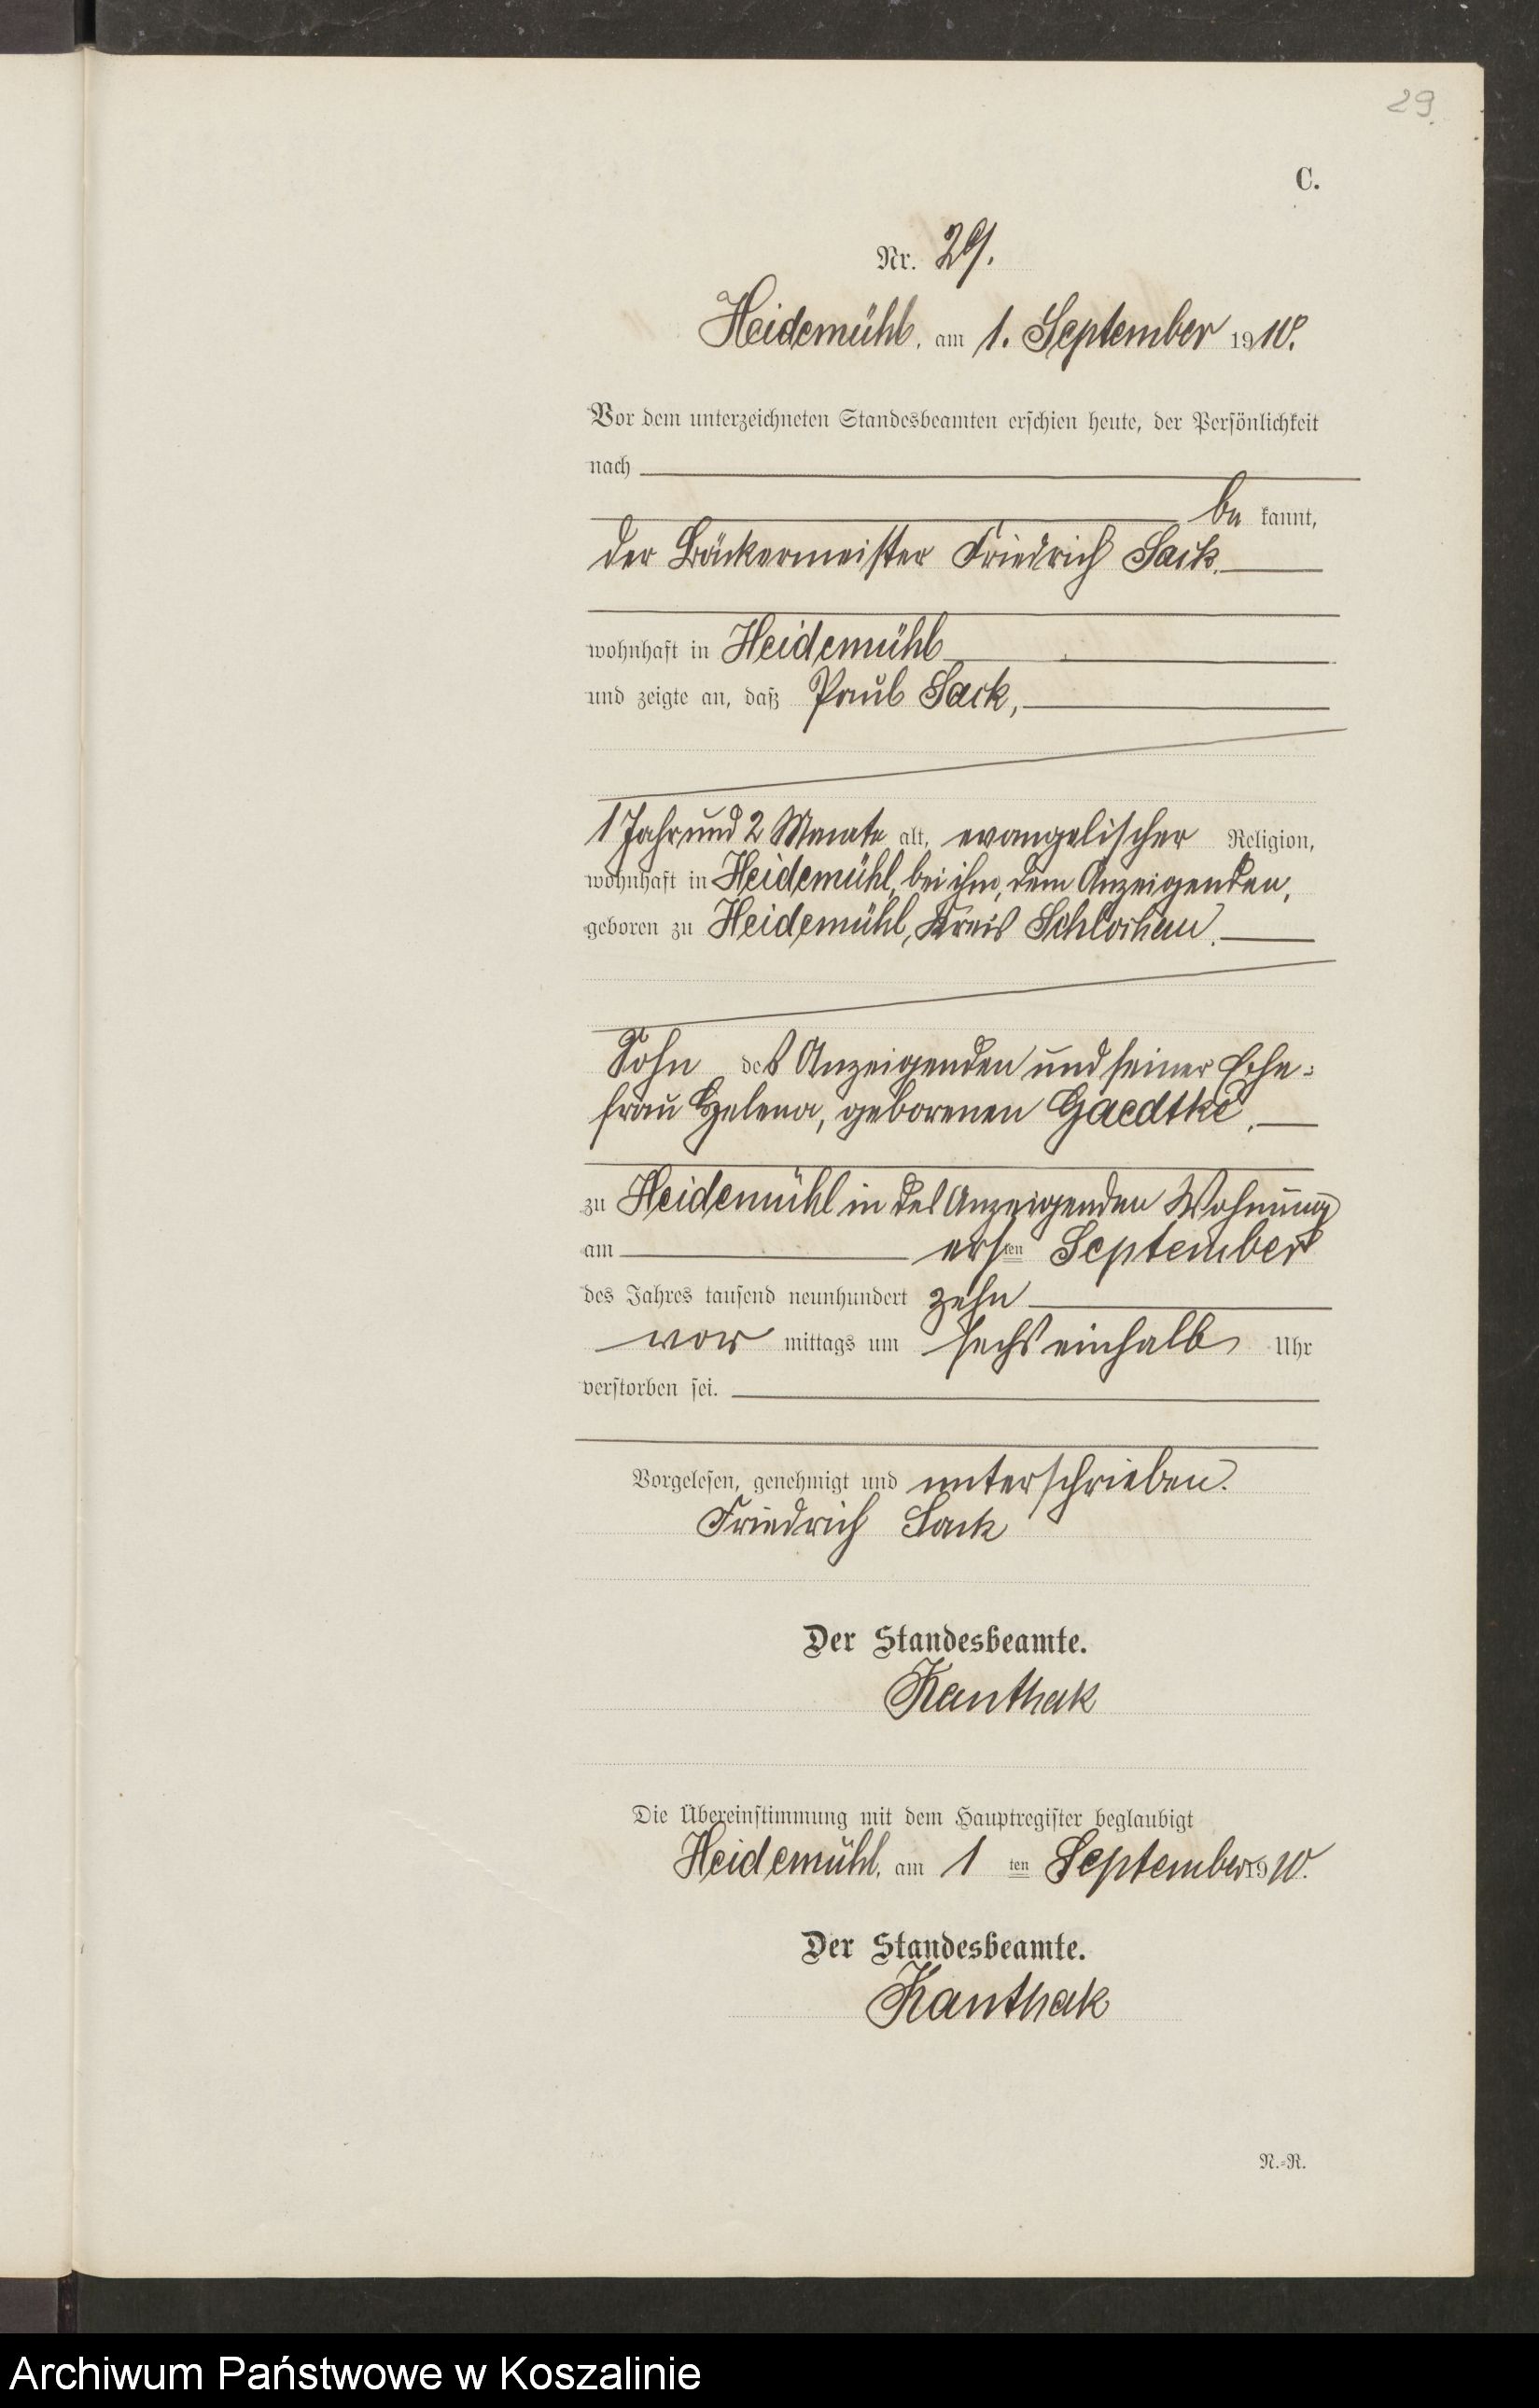 29.
C.
Nr. 29.
Heidemühl, am 1. September 1910.
Vor dem unterzeichneten Standesbeamten erschien heute, der Persönlichkeit
nach
be kannt,
der Bäckermeister Friedrich Sack,
wohnhaft in Heidemühl
und zeigte an, daß Paul Sack,
1 Jahr und 2 Monate alt, evangelischer Religion,
wohnhaft in Heidemühl, bei ihm, dem Anzeigenden,
geboren zu Heidemühl, Kreis Schlochau,
Sohn des Anzeigenden und seiner Ehe-
frau Helena, geborenen Gaedtke,
zu Heidemühl in des Anzeigenden Wohnung
am ersten September
des Jahres tausend neunhundert zehn
vor mittags um sechs einhalb Uhr
verstorben sei.
Vorgelesen, genehmigt und unterschrieben.
Friedrich Sack
Der Standesbeamte.
Kanthak
Die Übereinstimmung mit dem Hauptregister beglaubigt
Heidemühl, am 1 ten September 1910.
Der Standesbeamte.
Kanthak
N.-R.
Archiwum Państwowe w Koszalinie